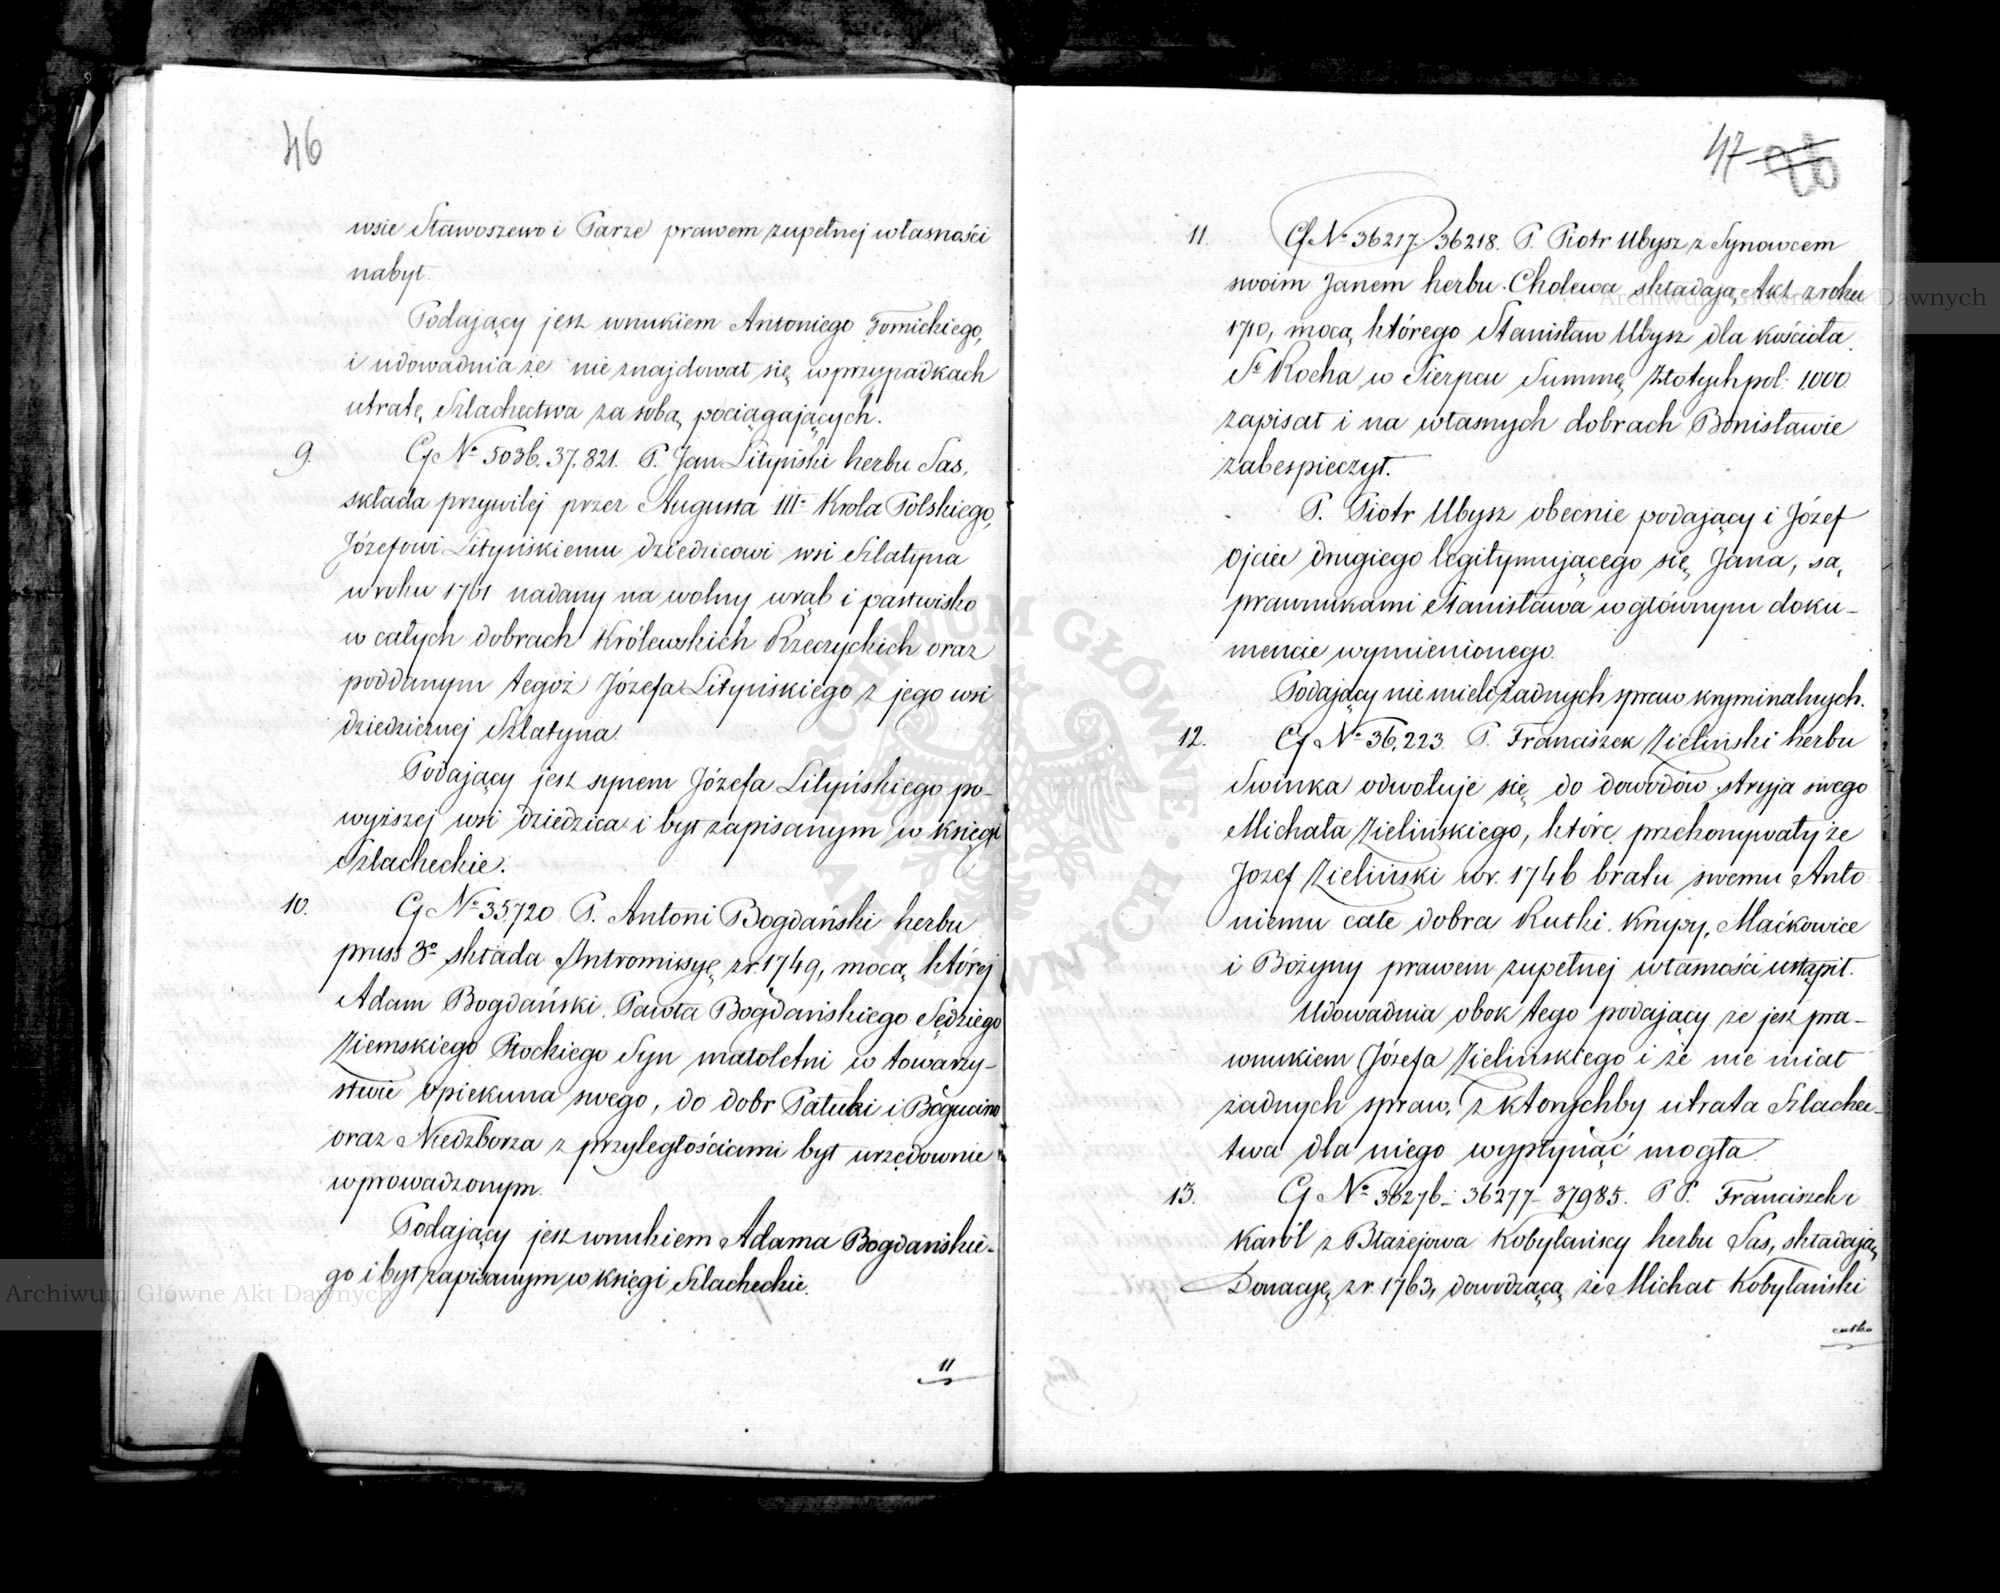 46
wsie Stawoszewo i Parze prawem zupełnej własności
nabył.
Podający jest wnukiem Antoniego Tomickiego,
i udowadnia że nie znajdował się w przypadkach
utratę Szlachectwa za sobą pociągających.
9. CJ No 5036. 37.821. P. Jan Lityński herbu Sas,
składa przywilej przez Augusta III-o Króla Polskiego,
Józefowi Lityńskiemu dziedzicowi wsi Szlatyna
w roku 1761 nadany na wolny wrąb i pastwisko
w całych dobrach Królewskich Rzeczyckich oraz
poddanym tegoż Józefa Lityńskiego z jego wsi
dziedzicznej Szlatyna.
Podający jest synem Józefa Lityńskiego po-
wyższej wsi dziedzica i był zapisanym w księgi
Szlacheckie.
10. CJ No 35720 P. Antoni Bogdański herbu
pruss 3o składa Intromissyę z r. 1749, mocą której
Adam Bogdański, Pawła Bogdańskiego Sędziego
Ziemskiego Płockiego Syn małoletni w towarzy-
stwie opiekuna swego, do dobr Pałuki i Bogucino
oraz Niedzborza z przyległościami był urzędownie
wprowadzonym.
Podający jest wnukiem Adama Bogdańskie-
go i był zapisanym w księgi Szlacheckie.
11
47
11. CJ No 36217. 36218. P. Piotr Ubysz z Synowcem
swoim Janem herbu Cholewa składają Akt z roku
1710, mocą którego Stanisław Ubysz dla kościoła
Sgo Rocha w Sierpcu Summę Złotych pol: 1,000
zapisał i na własnych dobrach Bonisławie
zabespieczył.
P. Piotr Ubysz obecnie podający i Józef
ojciec drugiego legitymującego się Jana, są
prawnukami Stanisława w głównym doku-
mencie wymienionego.
Podający nie mieli żadnych spraw kryminalnych.
12. CJ No 36,223 P. Franciszek Zieliński herbu
Swinka odwołuje się do dowodów stryja swego
Michała Zielińskiego, które przekonywały że
Jozef Zieliński w r. 1746 bratu swemu Anto-
niemu całe dobra Rutki, Krupy, Maćkowice
i Bożyny prawem zupełnej własności ustąpił.
Udowadnia obok tego podający że jest pra-
wnukiem Józefa Zielińskiego i że nie miał
żadnych spraw, z ktorychby utrata Szlachec-
twa dla niego wypłynąć mogła.
13. CJ No 36276- 36277- 37985. P P. Franciszek i
Karol z Błażejowa Kobylańscy herbu Sas, składają
Donacyę z r. 1763, dowodzącą że Michał Kobylański
całko
ARCHIWUM GŁÓWNE AKT DAWNYCH
Archiwum Główne Akt Dawnych
Archiwum Główne Akt Dawnych